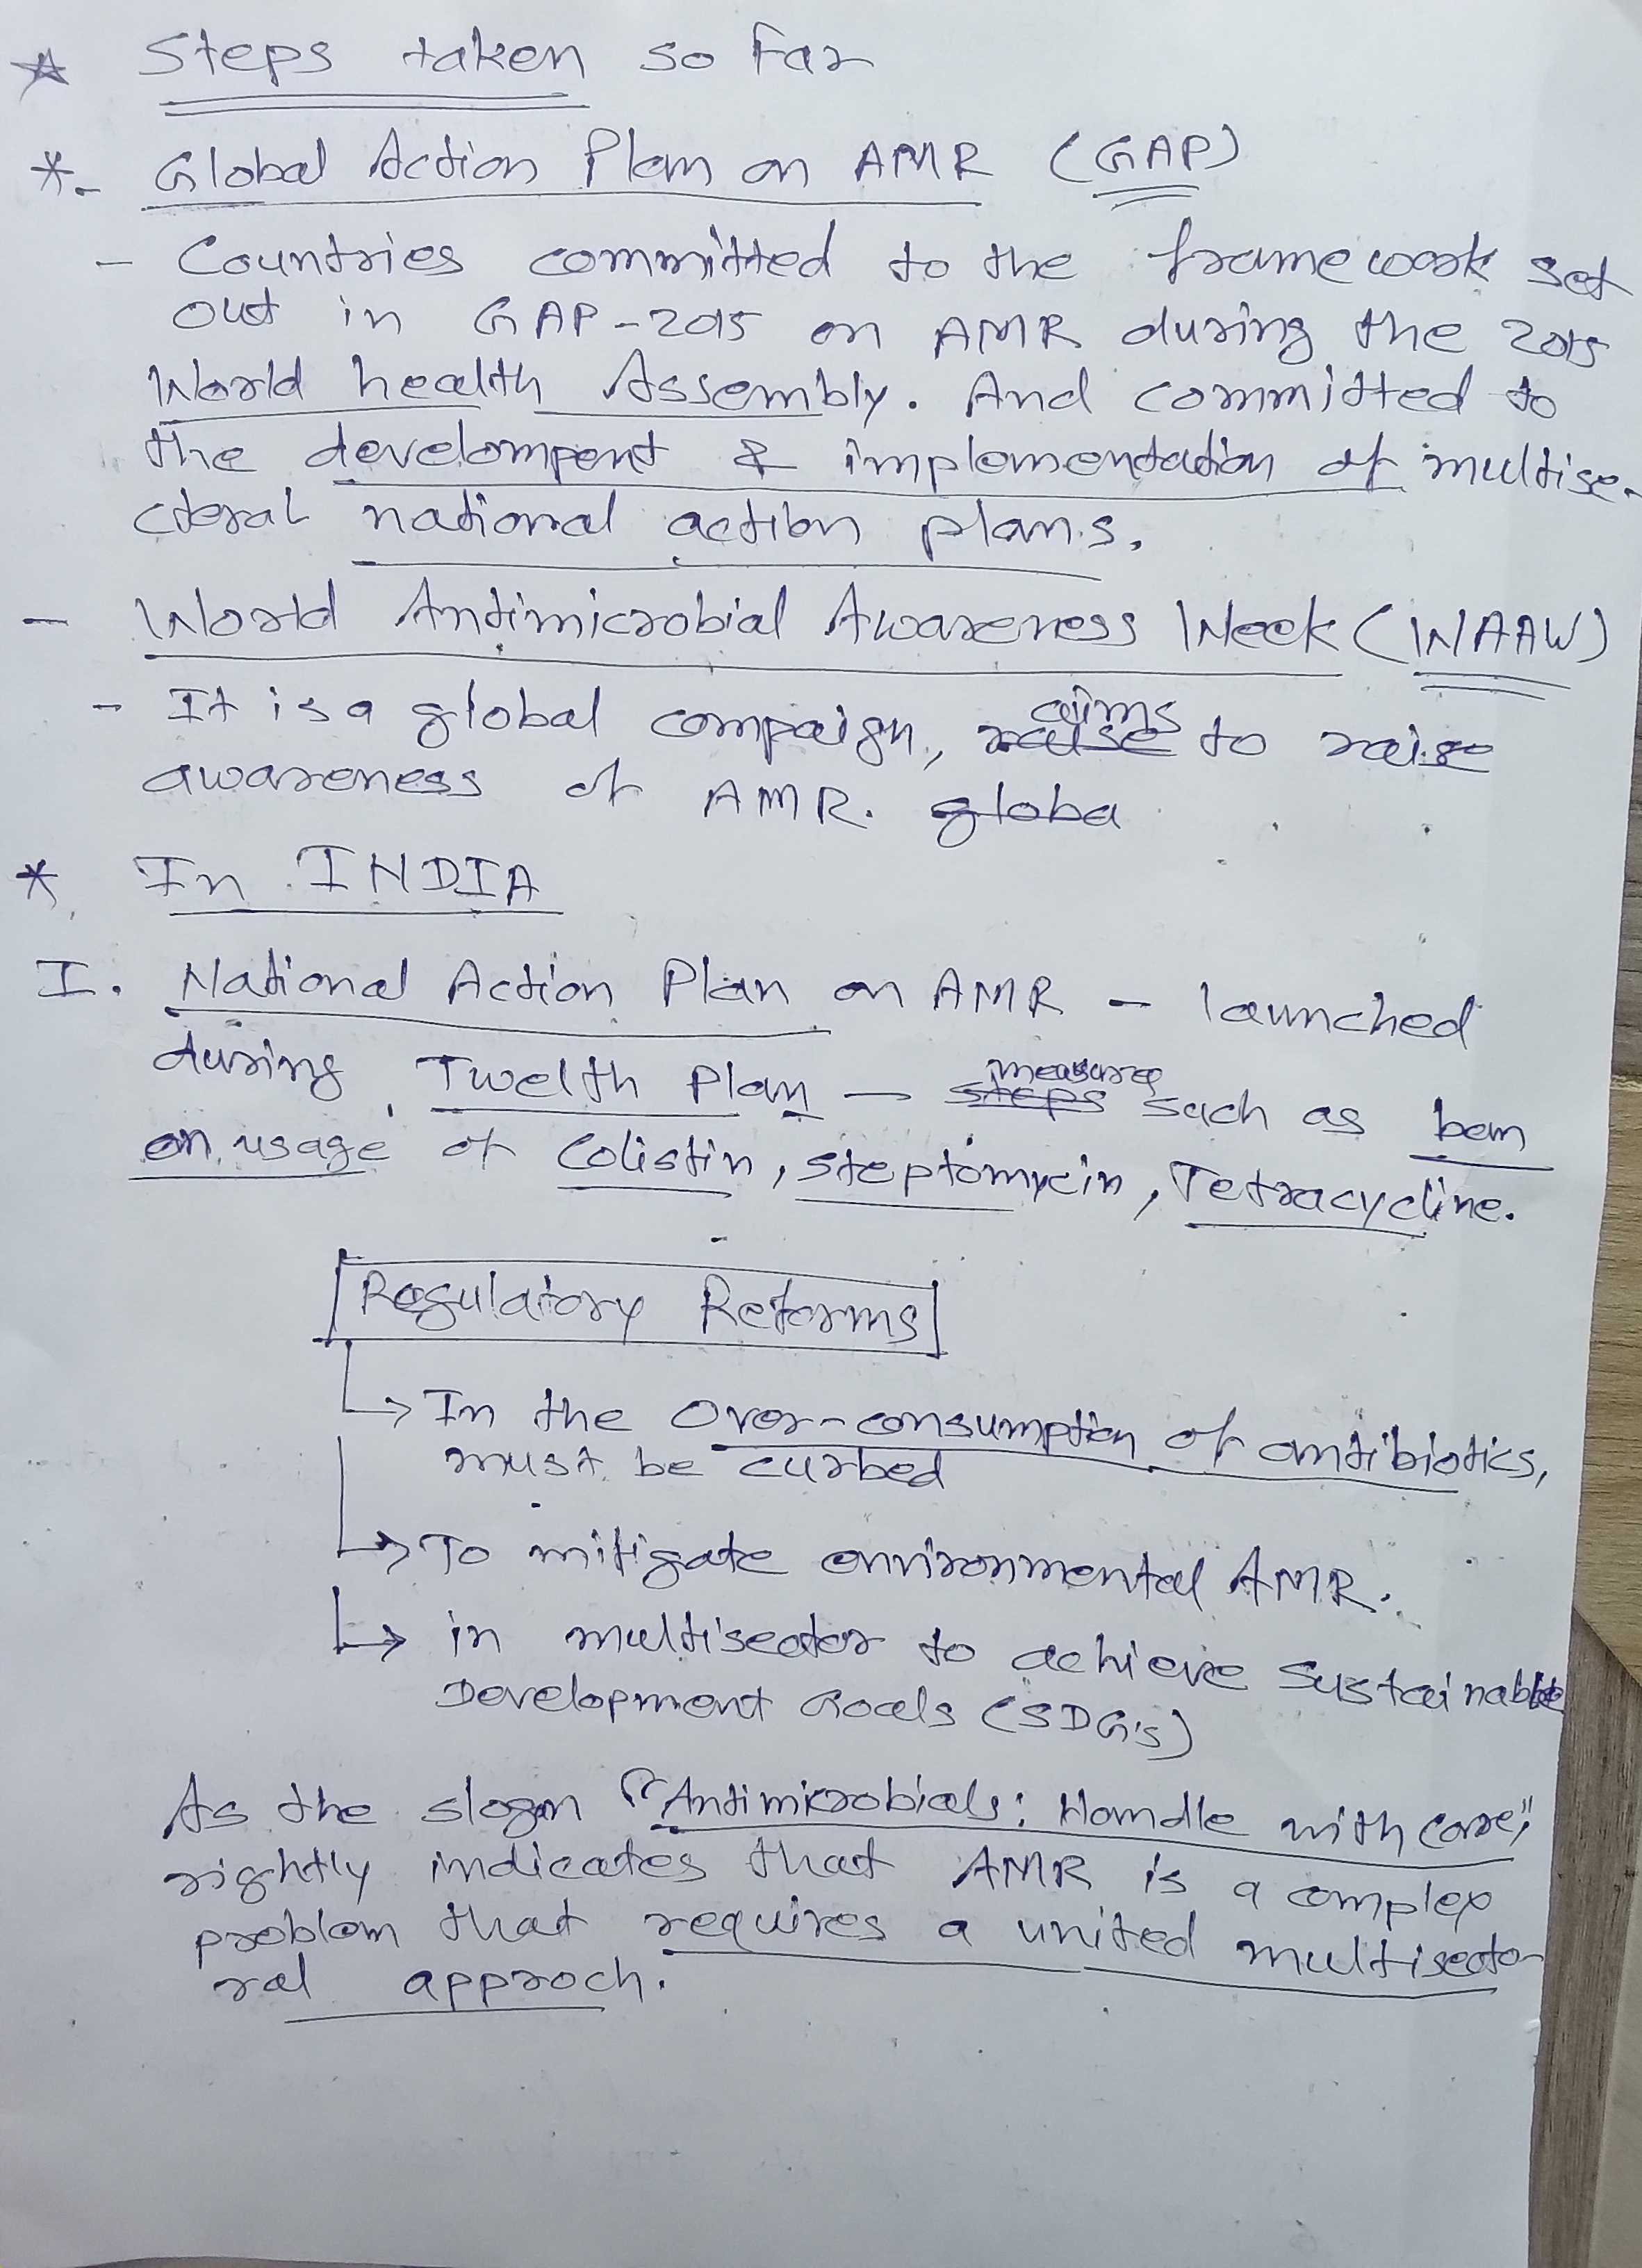 ☆ Steps taken so far
*- Global Action Plan on AMR (GAP)
- Countries committed to the framework set
out in GAP-2015 on AMR during the 2015
World health Assembly. And committed to
the develompent & implementation of multise-
ctoral national action plans.
- World Antimicrobial Awareness Week (WAAW)
- It is a global compaign, ~~raise~~ aims to raise
awareness of AMR. ~~globa~~
* In INDIA
I. National Action Plan on AMR - launched
during Twelth Plan - ~~steps~~ measures such as ban
on usage of Colistin, steptomycin, Tetracycline.
Regulatory Reforms
↳ In the Over-consumption of antibiotics,
must be curbed
↳ To mitigate environmental AMR.
↳ in multisector to achieve Sustainable
Development Goals (SDG's)
As the slogan "Antimicrobials: Handle with care",
rightly indicates that AMR is a complex
problem that requires a united multisecto
ral approch.